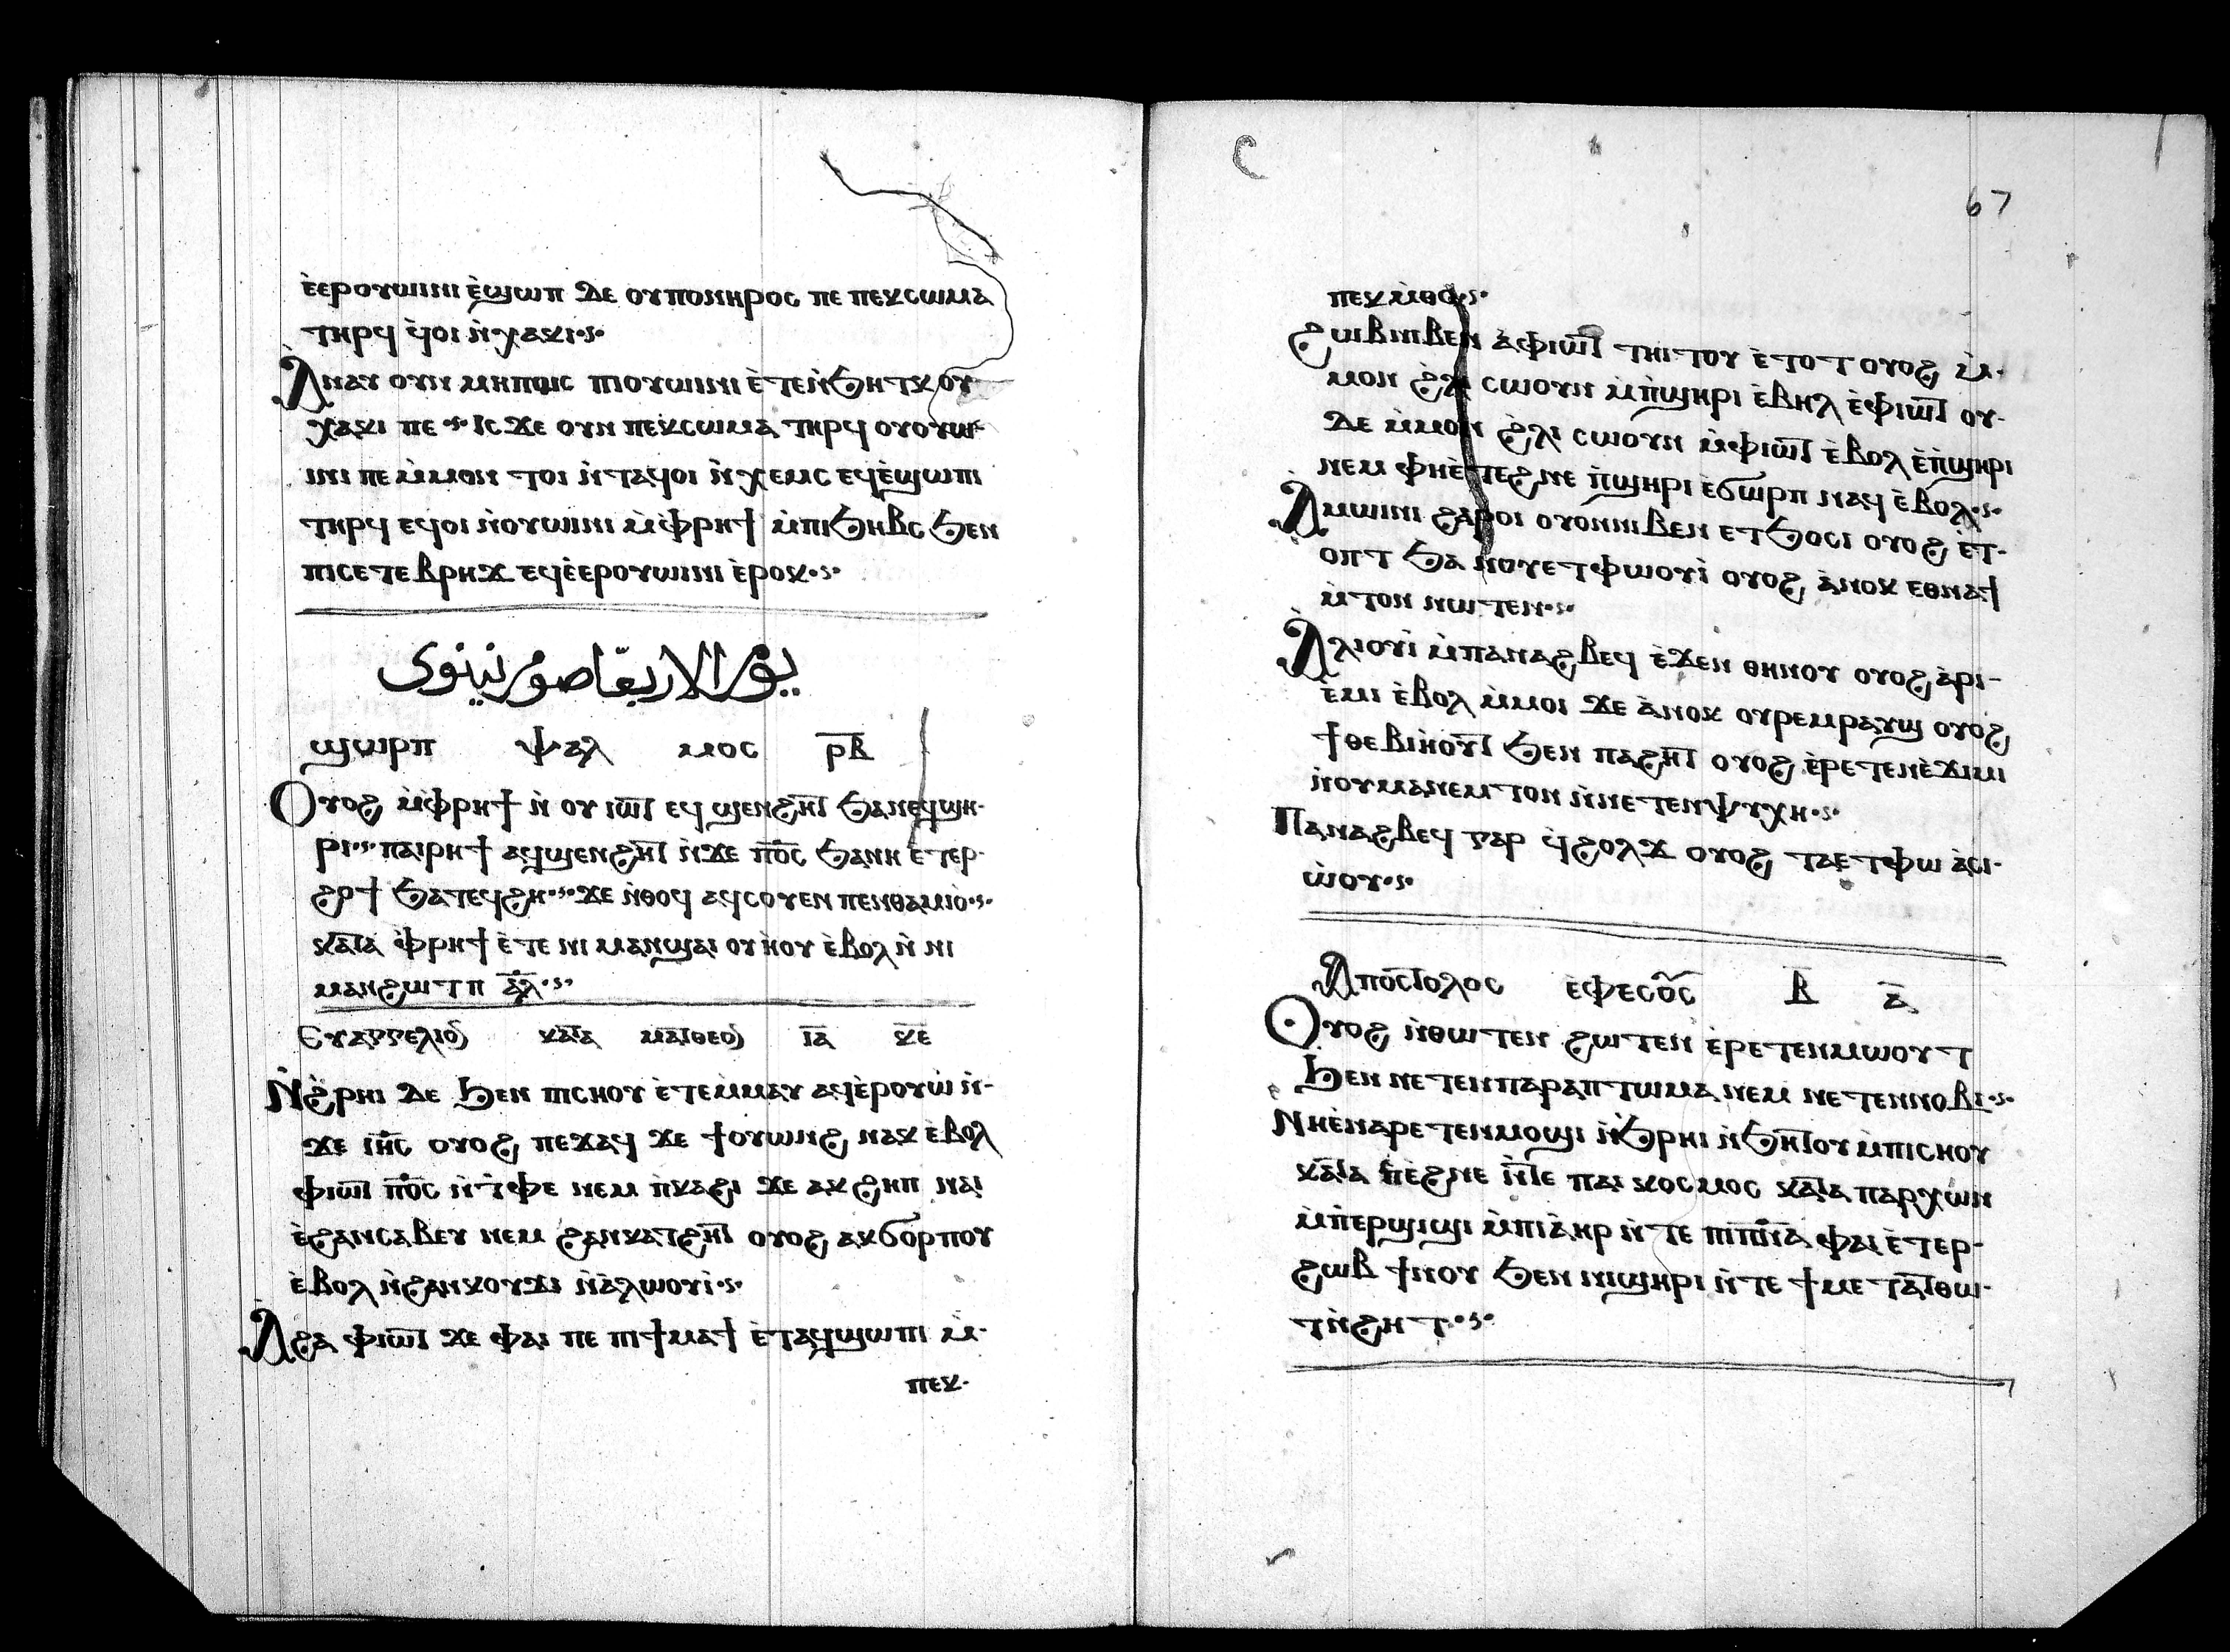 ⲉ̀ⲉⲣⲟⲩⲱⲓⲛⲓ ⲉ̀ϣⲱⲡ ⲇⲉ ⲟⲩⲡⲟⲛⲏⲣⲟⲥ ⲡⲉ ⲡⲉⲕⲥⲱⲙⲁ
ⲧⲏⲣϥ ϥ̀ⲟⲓ ⲛ̀ⲭⲁⲕⲓ·ⲋ·
Ⲁⲛⲁⲩ ⲟⲩⲛ ⲙⲏⲡⲱⲥ ⲡⲓⲟⲩⲱⲓⲛⲓ ⲉ̀ⲧⲉⲛ̀ϧⲏⲧⲕ ⲟⲩ
ⲭⲁⲕⲓ ⲡⲉ·ⲋ· ⲓⲥϫⲉ ⲟⲩⲛ ⲡⲉⲕⲥⲱⲙⲁ ⲧⲏⲣϥ ⲟⲩⲟⲩⲱ-
ⲓⲛⲓ ⲡⲉ ⲙ̀ⲙⲟⲛ ⲧⲟⲓ ⲛ̀ⲧⲁϥⲟⲓ ⲛ̀ⲭⲉⲙⲥ ⲉϥⲉ̀ϣⲱⲡⲓ
ⲧⲏⲣϥ ⲉϥⲟⲓ ⲛ̀ⲟⲩⲱⲓⲛⲓ ⲙ̀ⲫⲣⲏϯ ⲙ̀ⲡⲓϧⲏⲃⲥ ϧⲉⲛ
ⲡⲓⲥⲉⲧⲉⲃⲣⲏϫ ⲉϥⲉ̀ⲉⲣⲟⲩⲱⲓⲛⲓ ⲉ̀ⲣⲟⲕ·ⲋ·
يوم الاربعا صوم نينوى
ϣⲱⲣⲡ ⲯⲁⲗ ⲙⲟⲥ ⲣ̅ⲃ̅
Ⲟⲩⲟϩ ⲙ̀ⲫⲣⲏϯ ⲛ̀ ⲟⲩ ⲓⲱ̅ⲧ ⲉϥ ϣⲉⲛϩⲏ̅ⲧ ϧⲁⲛⲉϥϣⲏ-
ⲣⲓ·ⲋ· ⲡⲁⲓⲣⲏϯ ⲁϥϣⲉⲛϩⲏ̅ⲧ ⲛ̀ϫⲉ ⲡ̅ⲟ̅ⲥ̅ ϧⲁⲛⲏ ⲉ̀ⲧⲉⲣ-
ϩⲟϯ ϧⲁⲧⲉϥϩⲏ·ⲋ· ϫⲉ ⲛ̀ⲑⲟϥ ⲁϥⲥⲟⲩⲉⲛ ⲡⲉⲛⲑⲁⲙⲓⲟ̀·ⲋ·
ⲕⲁ̅ⲧⲁ ⲫ̀ⲣⲏϯ ⲉ̀ⲧⲉ ⲛⲓ ⲙⲁⲛϣⲁⲓ ⲟⲩⲏ̀ⲟⲩ ⲉ̀ⲃⲟⲗ ⲛ̀ ⲛⲓ
ⲙⲁⲛϩⲱⲧⲡ ⲁ̅ⲗ̅·ⲋ·
Ⲉⲩⲁⲅⲅⲉⲗⲓⲟ̅ ⲕⲁ̅ⲧⲁ ⲙⲁ̅ⲧⲑⲉⲟ̅ ⲓ̅ⲁ̅ ⲕ̅ⲉ̅
Ⲛ̀ϩ̀ⲣⲏⲓ ⲇⲉ ϧⲉⲛ ⲡⲓⲥⲏⲟⲩ ⲉ̀ⲧⲉⲙ̀ⲙⲁⲩ ⲁϥⲉ̀ⲣⲟⲩⲱ̀ ⲛ̀-
ϫⲉ ⲓ̅ⲏ̅ⲥ̅ ⲟⲩⲟϩ ⲡⲉϫⲁϥ ϫⲉ ϯⲟⲩⲱⲛϩ ⲛⲁⲕ ⲉ̀ⲃⲟⲗ
ⲫⲓⲱ̅ⲧ ⲡ̅ⲟ̅ⲥ̅ ⲛ̀ⲧ̀ⲫⲉ ⲛⲉⲙ ⲡ̀ⲕⲁϩⲓ ϫⲉ ⲁⲕ ϩⲏⲡ ⲛⲁⲓ
ⲉ̀ϩⲁⲛⲥⲁⲃⲉⲩ ⲛⲉⲙ ϩⲁⲛⲕⲁⲧϩⲏ̅ⲧ ⲟⲩⲟϩ ⲁⲕϭⲟⲣⲡⲟⲩ
ⲉ̀ⲃⲟⲗ ⲛ̀ϩⲁⲛⲕⲟⲩϫⲓ ⲛ̀ⲁ̀ⲗⲱⲟⲩⲓ̀·ⲋ·
Ⲁϩⲁ ⲫⲓⲱ̅ⲧ ϫⲉ ⲫⲁⲓ ⲡⲉ ⲡⲓϯⲙⲁϯ ⲉ̀ⲧⲁϥϣⲱⲡⲓ ⲙ̀-
ⲡⲉⲕ-
67
ⲡⲉⲕⲙ̀ⲑⲟ·ⲋ·
Ϩⲱⲃⲛⲓⲃⲉⲛ ⲁ̀ⲫⲓⲱ̅ⲧ ⲧⲏⲓⲧⲟⲩ ⲉ̀ⲧⲟⲧ ⲟⲩⲟϩ ⲙ̀-
ⲙⲟⲛ ϩ̀ⲗⲓ ⲥⲱⲟⲩⲛ ⲙ̀ⲡ̀ϣⲏⲣⲓ ⲉ̀ⲃⲏⲗ ⲉ̀ⲫⲓⲱ̅ⲧ ⲟⲩ-
ⲇⲉ ⲙ̀ⲙⲟⲛ ϩ̀ⲗⲓ ⲥⲱⲟⲩⲛ ⲙ̀ⲫⲓⲱ̅ⲧ ⲉ̀ⲃⲟⲗ ⲉ̀ⲡ̀ϣⲏⲣⲓ
ⲛⲉⲙ ⲫⲏⲉ̀ⲧⲉϩⲛⲉ ⲡ̀ϣⲏⲣⲓ ⲉ̀ϭⲱⲣⲡ ⲛⲁϥ ⲉ̀ⲃⲟⲗ·ⲋ·
Ⲁⲙⲱⲓⲛⲓ ϩⲁⲣⲟⲓ ⲟⲩⲟⲛⲛⲓⲃⲉⲛ ⲉⲧϧⲟⲥⲓ ⲟⲩⲟϩ ⲉ̀ⲧ-
ⲟⲡⲧ ϧⲁ ⲛⲟⲩⲉⲧⲫⲱⲟⲩⲓ̀ ⲟⲩⲟϩ ⲁ̀ⲛⲟⲕ ⲉⲑⲛⲁϯ
ⲙ̀ⲧⲟⲛ ⲛⲱⲧⲉⲛ·ⲋ·
Ⲁⲗⲓⲟⲩⲓ̀ ⲙ̀ⲡⲁⲛⲁϩⲃⲉϥ ⲉ̀ϫⲉⲛ ⲑⲏⲛⲟⲩ ⲟⲩⲟϩ ⲁ̀ⲣⲓ-
ⲉ̀ⲙⲓ ⲉ̀ⲃⲟⲗ ⲙ̀ⲙⲟⲓ ϫⲉ ⲁ̀ⲛⲟⲕ ⲟⲩⲣⲉⲙⲣⲁⲩϣ ⲟⲩⲟϩ
ϯⲑⲉⲃⲓⲏ̀ⲟⲩ̅ⲧ ϧⲉⲛ ⲡⲁϩⲏ̅ⲧ ⲟⲩⲟϩ ⲉ̀ⲣⲉⲧⲉⲛⲉ̀ϫⲓⲙⲓ
ⲛ̀ⲟⲩⲙⲁⲛⲉⲙⲧⲟⲛ ⲛ̀ⲛⲉⲧⲉⲛⲯⲩⲭⲏ·ⲋ·
Ⲡⲁⲛⲁϩⲃⲉϥ ⲅⲁⲣ ϥ̀ϩⲟⲗϫ ⲟⲩⲟϩ ⲧⲁⲉⲧⲫⲱ ⲁ̀ⲥⲓ-
ⲱ̀ⲟⲩ·ⲋ·
Ⲁⲡⲟⲥ̅ⲧⲟⲗⲟⲥ ⲉ̀ⲫⲉⲥⲟⲥ ⲃ̅ ⲁ̅
Ⲟⲩⲟϩ ⲛ̀ⲑⲱⲧⲉⲛ ϩⲱⲧⲉⲛ ⲉ̀ⲣⲉⲧⲉⲛⲙⲱⲟⲩⲧ
ϧⲉⲛ ⲛⲉⲧⲉⲛⲡⲁⲣⲁⲡⲧⲱⲙⲁ ⲛⲉⲙ ⲛⲉⲧⲉⲛⲛⲟⲃⲓ·ⲋ·
Ⲛⲏⲉ̀ⲛⲁⲣⲉⲧⲉⲛⲙⲟϣⲓ ⲛ̀ϧ̀ⲣⲏⲓ ⲛ̀ϧⲏ̅ⲧⲟⲩ ⲙ̀ⲡⲓⲥⲏⲟⲩ
ⲕⲁ̅ⲧⲁ ⲡⲉ̀ϩⲛⲉ ⲛ̀̅ⲧⲉ ⲡⲁⲓ ⲕⲟⲥⲙⲟⲥ ⲕⲁ̅ⲧⲁ ⲡⲁⲣⲭⲱⲛ
ⲙ̀ⲡ̀ⲉⲣϣⲓϣⲓ ⲙ̀ⲡⲓⲁ̀ⲏⲣ ⲛ̀ⲧⲉ ⲡⲓⲡ̅ⲛ̅ⲁ̅ ⲫⲁⲓ ⲉ̀ⲧⲉⲣ-
ϩⲱⲃ ϯⲛⲟⲩ ϧⲉⲛ ⲛⲓϣⲏⲣⲓ ⲛ̀ⲧⲉ ϯⲙⲉⲧⲁ̅ⲧⲑⲱ-
ⲧⲛ̀ϩⲏⲧ·ⲋ·